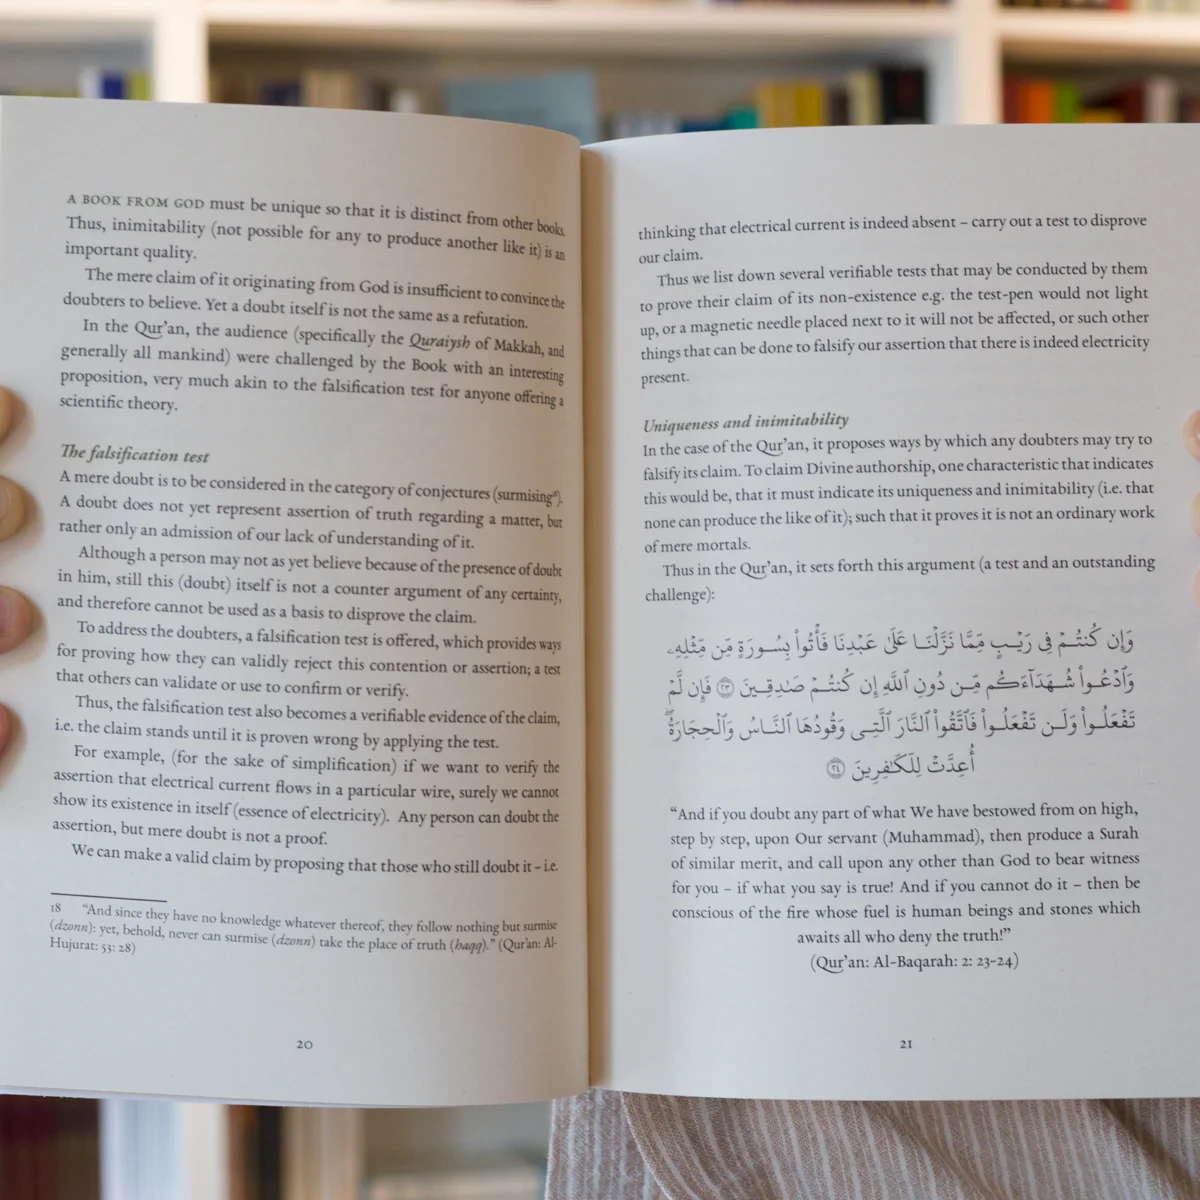 A BOOK FROM GOD must be unique so that it is distinct from other books.
Thus, inimitability (not possible for any to produce another like it) is an
important quality.
The mere claim of it originating from God is insufficient to convince the
doubters to believe. Yet a doubt itself is not the same as a refutation.
In the Qur'an, the audience (specifically the Quraiysh of Makkah, and
generally all mankind) were challenged by the Book with an interesting
proposition, very much akin to the falsification test for anyone offering a
scientific theory.
The falsification test
A mere doubt is to be considered in the category of conjectures (surmising¹⁸).
A doubt does not yet represent assertion of truth regarding a matter, but
rather only an admission of our lack of understanding of it.
Although a person may not as yet believe because of the presence of doubt
in him, still this (doubt) itself is not a counter argument of any certainty,
and therefore cannot be used as a basis to disprove the claim.
To address the doubters, a falsification test is offered, which provides ways
for proving how they can validly reject this contention or assertion; a test
that others can validate or use to confirm or verify.
Thus, the falsification test also becomes a verifiable evidence of the claim,
i.e. the claim stands until it is proven wrong by applying the test.
For example, (for the sake of simplification) if we want to verify the
assertion that electrical current flows in a particular wire, surely we cannot
show its existence in itself (essence of electricity). Any person can doubt the
assertion, but mere doubt is not a proof.
We can make a valid claim by proposing that those who still doubt it – i.e.
18 "And since they have no knowledge whatever thereof, they follow nothing but surmise
(dzonn): yet, behold, never can surmise (dzonn) take the place of truth (haqq)." (Qur'an: Al-
Hujurat: 53: 28)
20
thinking that electrical current is indeed absent – carry out a test to disprove
our claim.
Thus we list down several verifiable tests that may be conducted by them
to prove their claim of its non-existence e.g. the test-pen would not light
up, or a magnetic needle placed next to it will not be affected, or such other
things that can be done to falsify our assertion that there is indeed electricity
present.
Uniqueness and inimitability
In the case of the Qur'an, it proposes ways by which any doubters may try to
falsify its claim. To claim Divine authorship, one characteristic that indicates
this would be, that it must indicate its uniqueness and inimitability (i.e. that
none can produce the like of it); such that it proves it is not an ordinary work
of mere mortals.
Thus in the Qur'an, it sets forth this argument (a test and an outstanding
challenge):
وَإِن كُنتُمْ فِى رَيْبٍ مِّمَّا نَزَّلْنَا عَلَىٰ عَبْدِنَا فَأْتُوا۟ بِسُورَةٍ مِّن مِّثْلِهِۦ
وَٱدْعُوا۟ شُهَدَآءَكُم مِّن دُونِ ٱللَّهِ إِن كُنتُمْ صَٰدِقِينَ ٢٣ فَإِن لَّمْ
تَفْعَلُوا۟ وَلَن تَفْعَلُوا۟ فَٱتَّقُوا۟ ٱلنَّارَ ٱلَّتِى وَقُودُهَا ٱلنَّاسُ وَٱلْحِجَارَةُ ۖ
أُعِدَّتْ لِلْكَٰفِرِينَ ٢٤
"And if you doubt any part of what We have bestowed from on high,
step by step, upon Our servant (Muhammad), then produce a Surah
of similar merit, and call upon any other than God to bear witness
for you – if what you say is true! And if you cannot do it – then be
conscious of the fire whose fuel is human beings and stones which
awaits all who deny the truth!"
(Qur'an: Al-Baqarah: 2: 23-24)
21